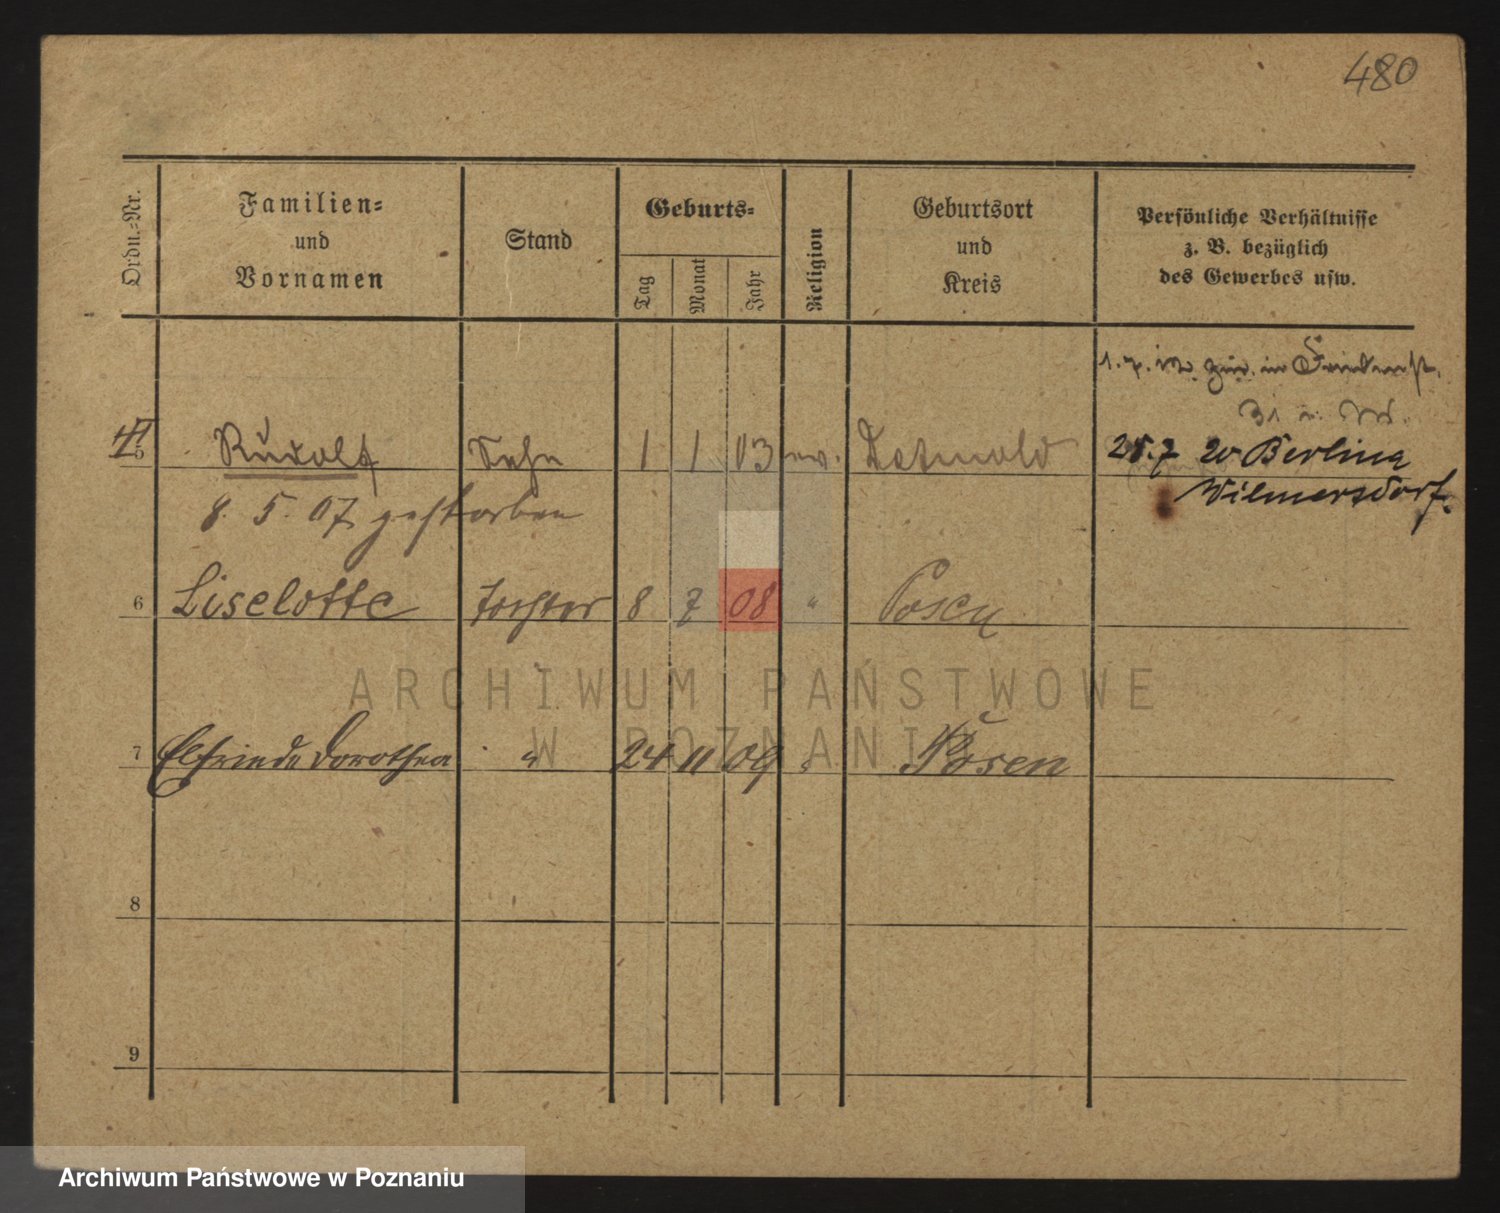 480
Ordn.-Nr.
Familien-
und
Vornamen
Stand
Geburts-
Tag
Monat
Jahr
Religion
Geburtsort
und
Kreis
Persönliche Verhältnisse
z. B. bezüglich
des Gewerbes usw.
5 Rudolf Sohn 1 1 03 ev. Detmold
28.7 20 Berlin
Wilmersdorf.
8. 5. 07 gestorben
6 Liselotte Tochter 8 7 08 " Posen
7 Elfriede Dorothea " 24 11 09 " Posen
8
9
ARCHIWUM PAŃSTWOWE
W POZNANIU
Archiwum Państwowe w Poznaniu